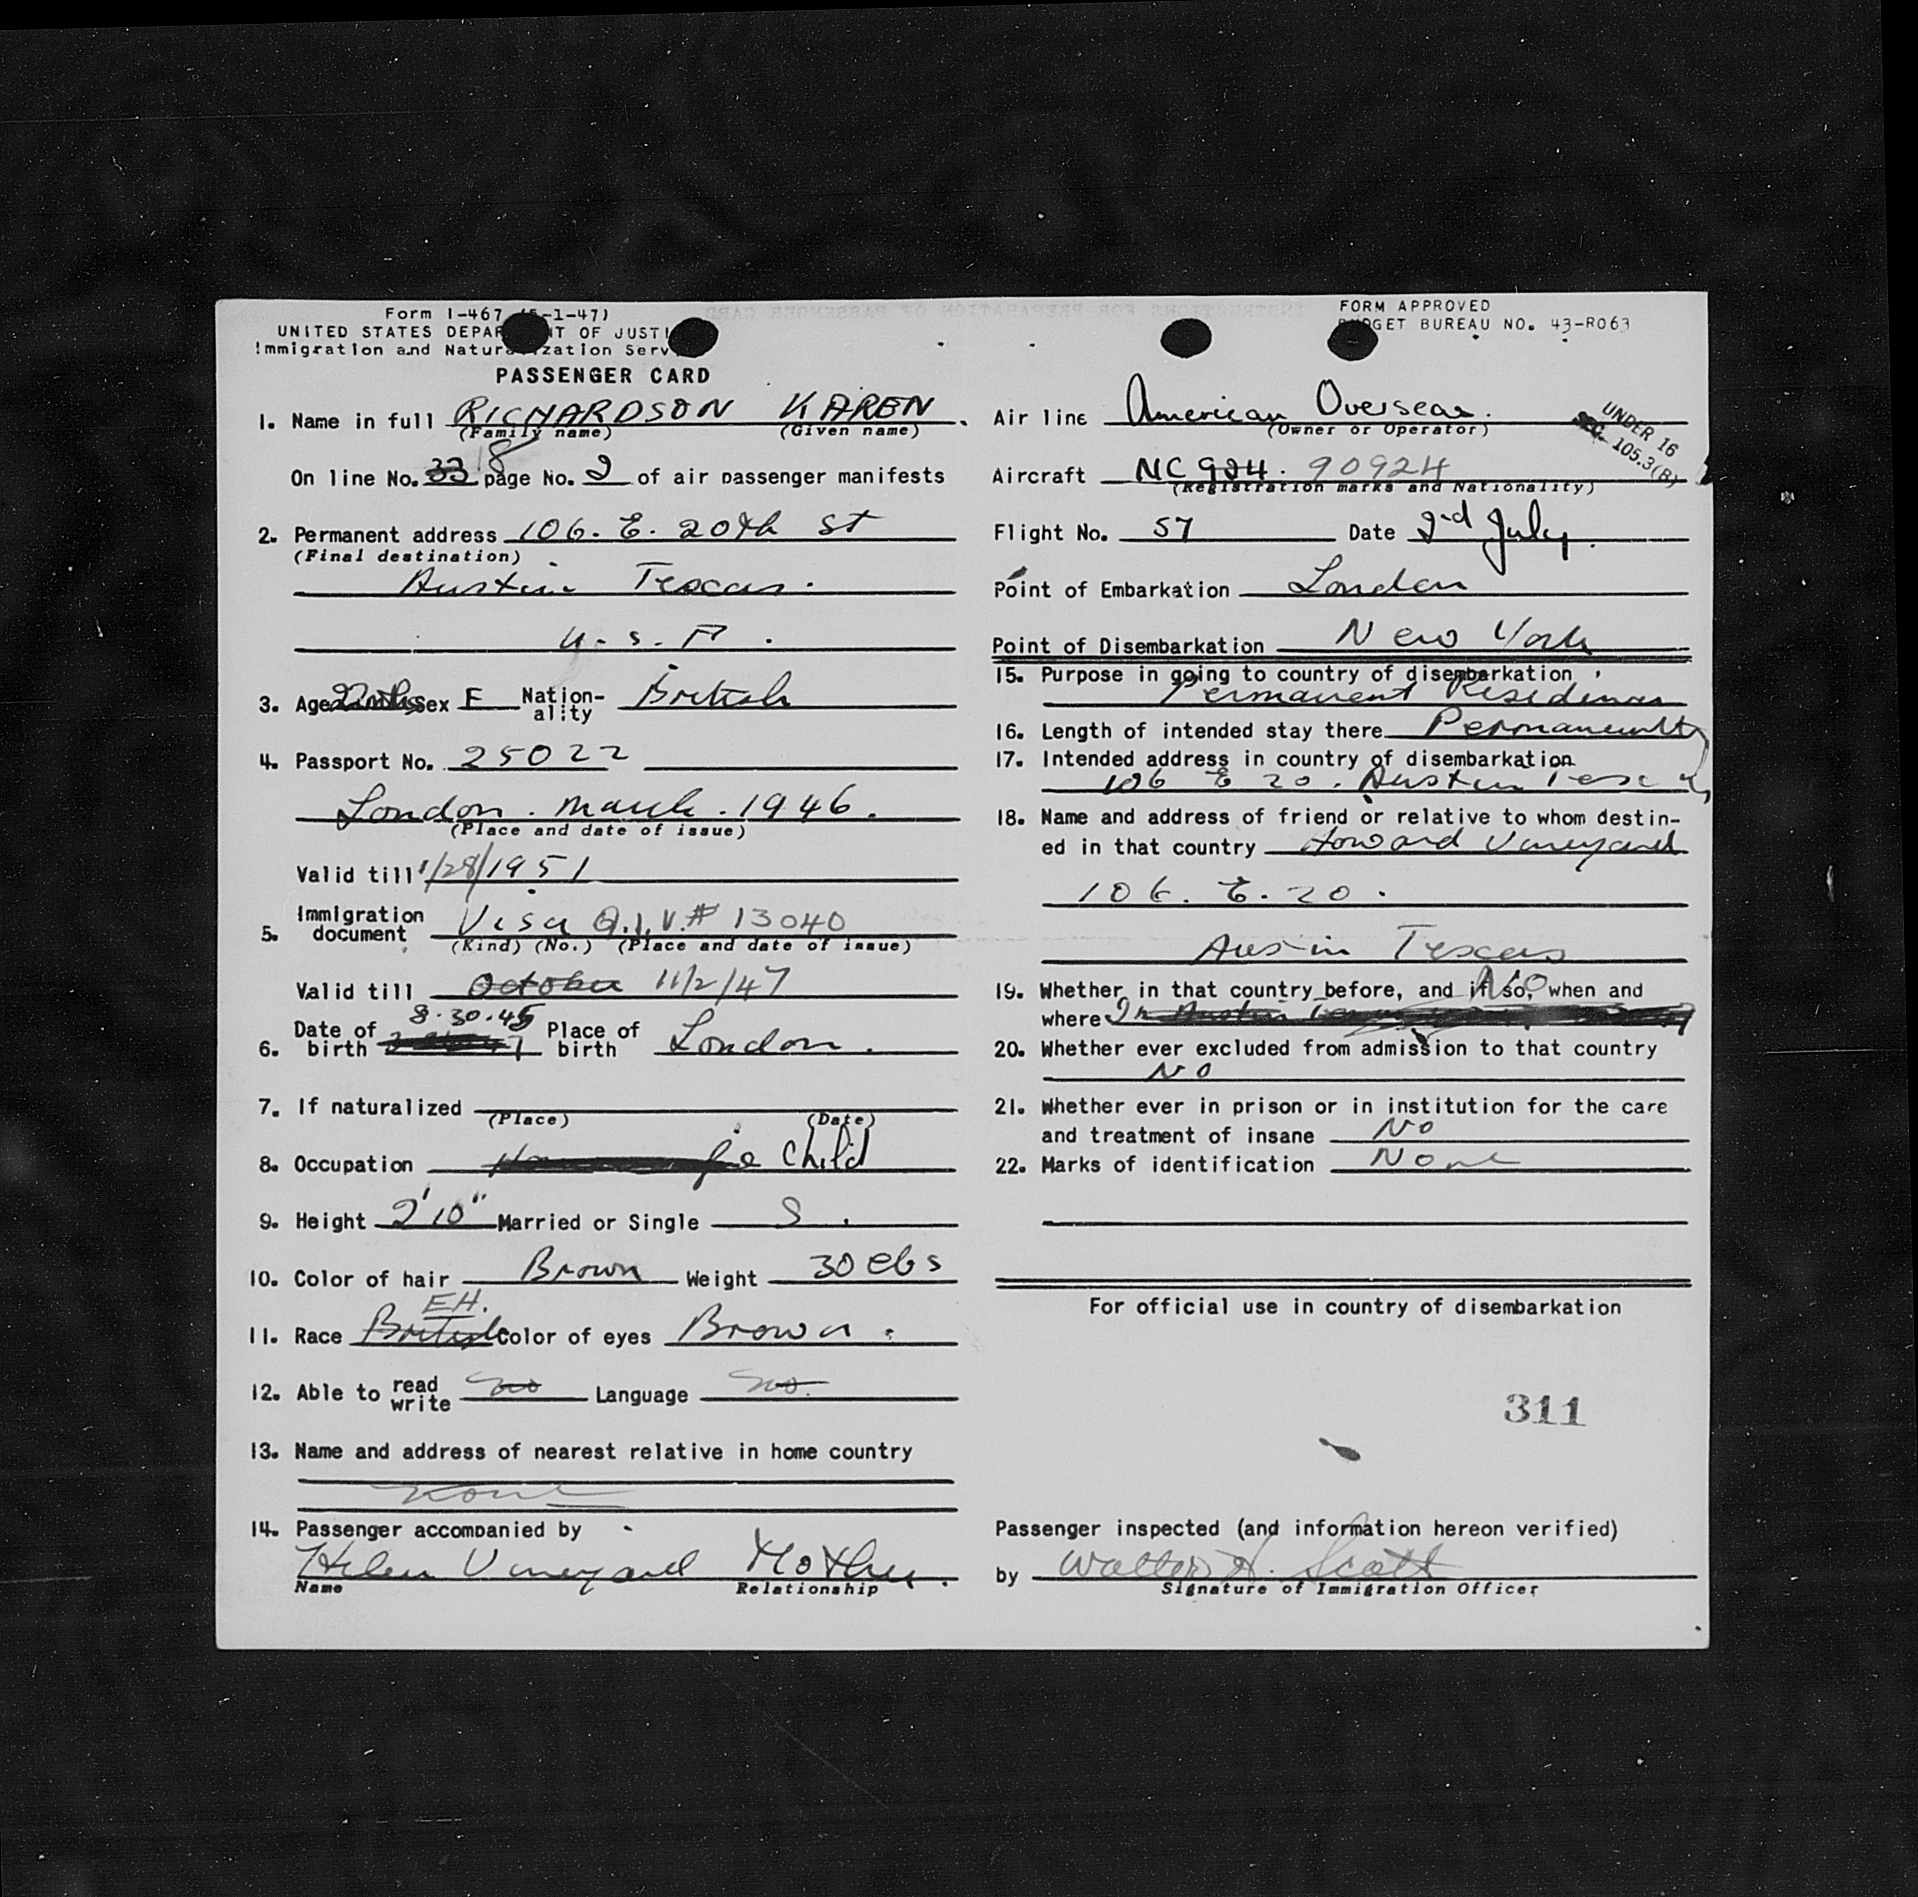 Form I-467 (5-1-47)
UNITED STATES DEPARTMENT OF JUSTICE
Immigration and Naturalization Service
PASSENGER CARD
1. Name in full RICHARDSON KAREN.
(Family name) (Given name)
On line No. 33 18 page No. 2 of air passenger manifests
2. Permanent address 106. E. 20th St
(Final destination)
Austin Texas.
U.S.A.
3. Age 22 mths Sex F Nation-ality British
4. Passport No. 25022
London. March. 1946.
(Place and date of issue)
Valid till 1/28/1951
5. Immigration document Visa Q.I.V.# 13040
(Kind) (No.) (Place and date of issue)
Valid till October 11/2/47
8.30.45
6. Date of birth Place of birth London.
7. If naturalized
(Place) (Date)
8. Occupation Child
9. Height 2'10" Married or Single S.
10. Color of hair Brown Weight 30 lbs
EH.
11. Race British Color of eyes Brown.
12. Able to read write no Language no.
13. Name and address of nearest relative in home country
None
14. Passenger accompanied by
Helen Vineyard Mother.
Name Relationship
FORM APPROVED
BUDGET BUREAU NO. 43-R063
Air line American Overseas.
(Owner or Operator)
UNDER 16
SEC. 105.3(B)
Aircraft NC 924. 90924
(Registration marks and Nationality)
Flight No. 57 Date 2nd July.
Point of Embarkation London
Point of Disembarkation New York
15. Purpose in going to country of disembarkation
Permanent Residence
16. Length of intended stay there Permanently
17. Intended address in country of disembarkation
106 E 20. Austin Texas
18. Name and address of friend or relative to whom destin-
ed in that country Howard Vineyard
106. E. 20.
Austin Texas
19. Whether in that country before, and if so, when and
No
where In Austin
20. Whether ever excluded from admission to that country
NO
21. Whether ever in prison or in institution for the care
and treatment of insane No
22. Marks of identification None
For official use in country of disembarkation
311
Passenger inspected (and information hereon verified)
by Walter A. Scott
Signature of Immigration Officer